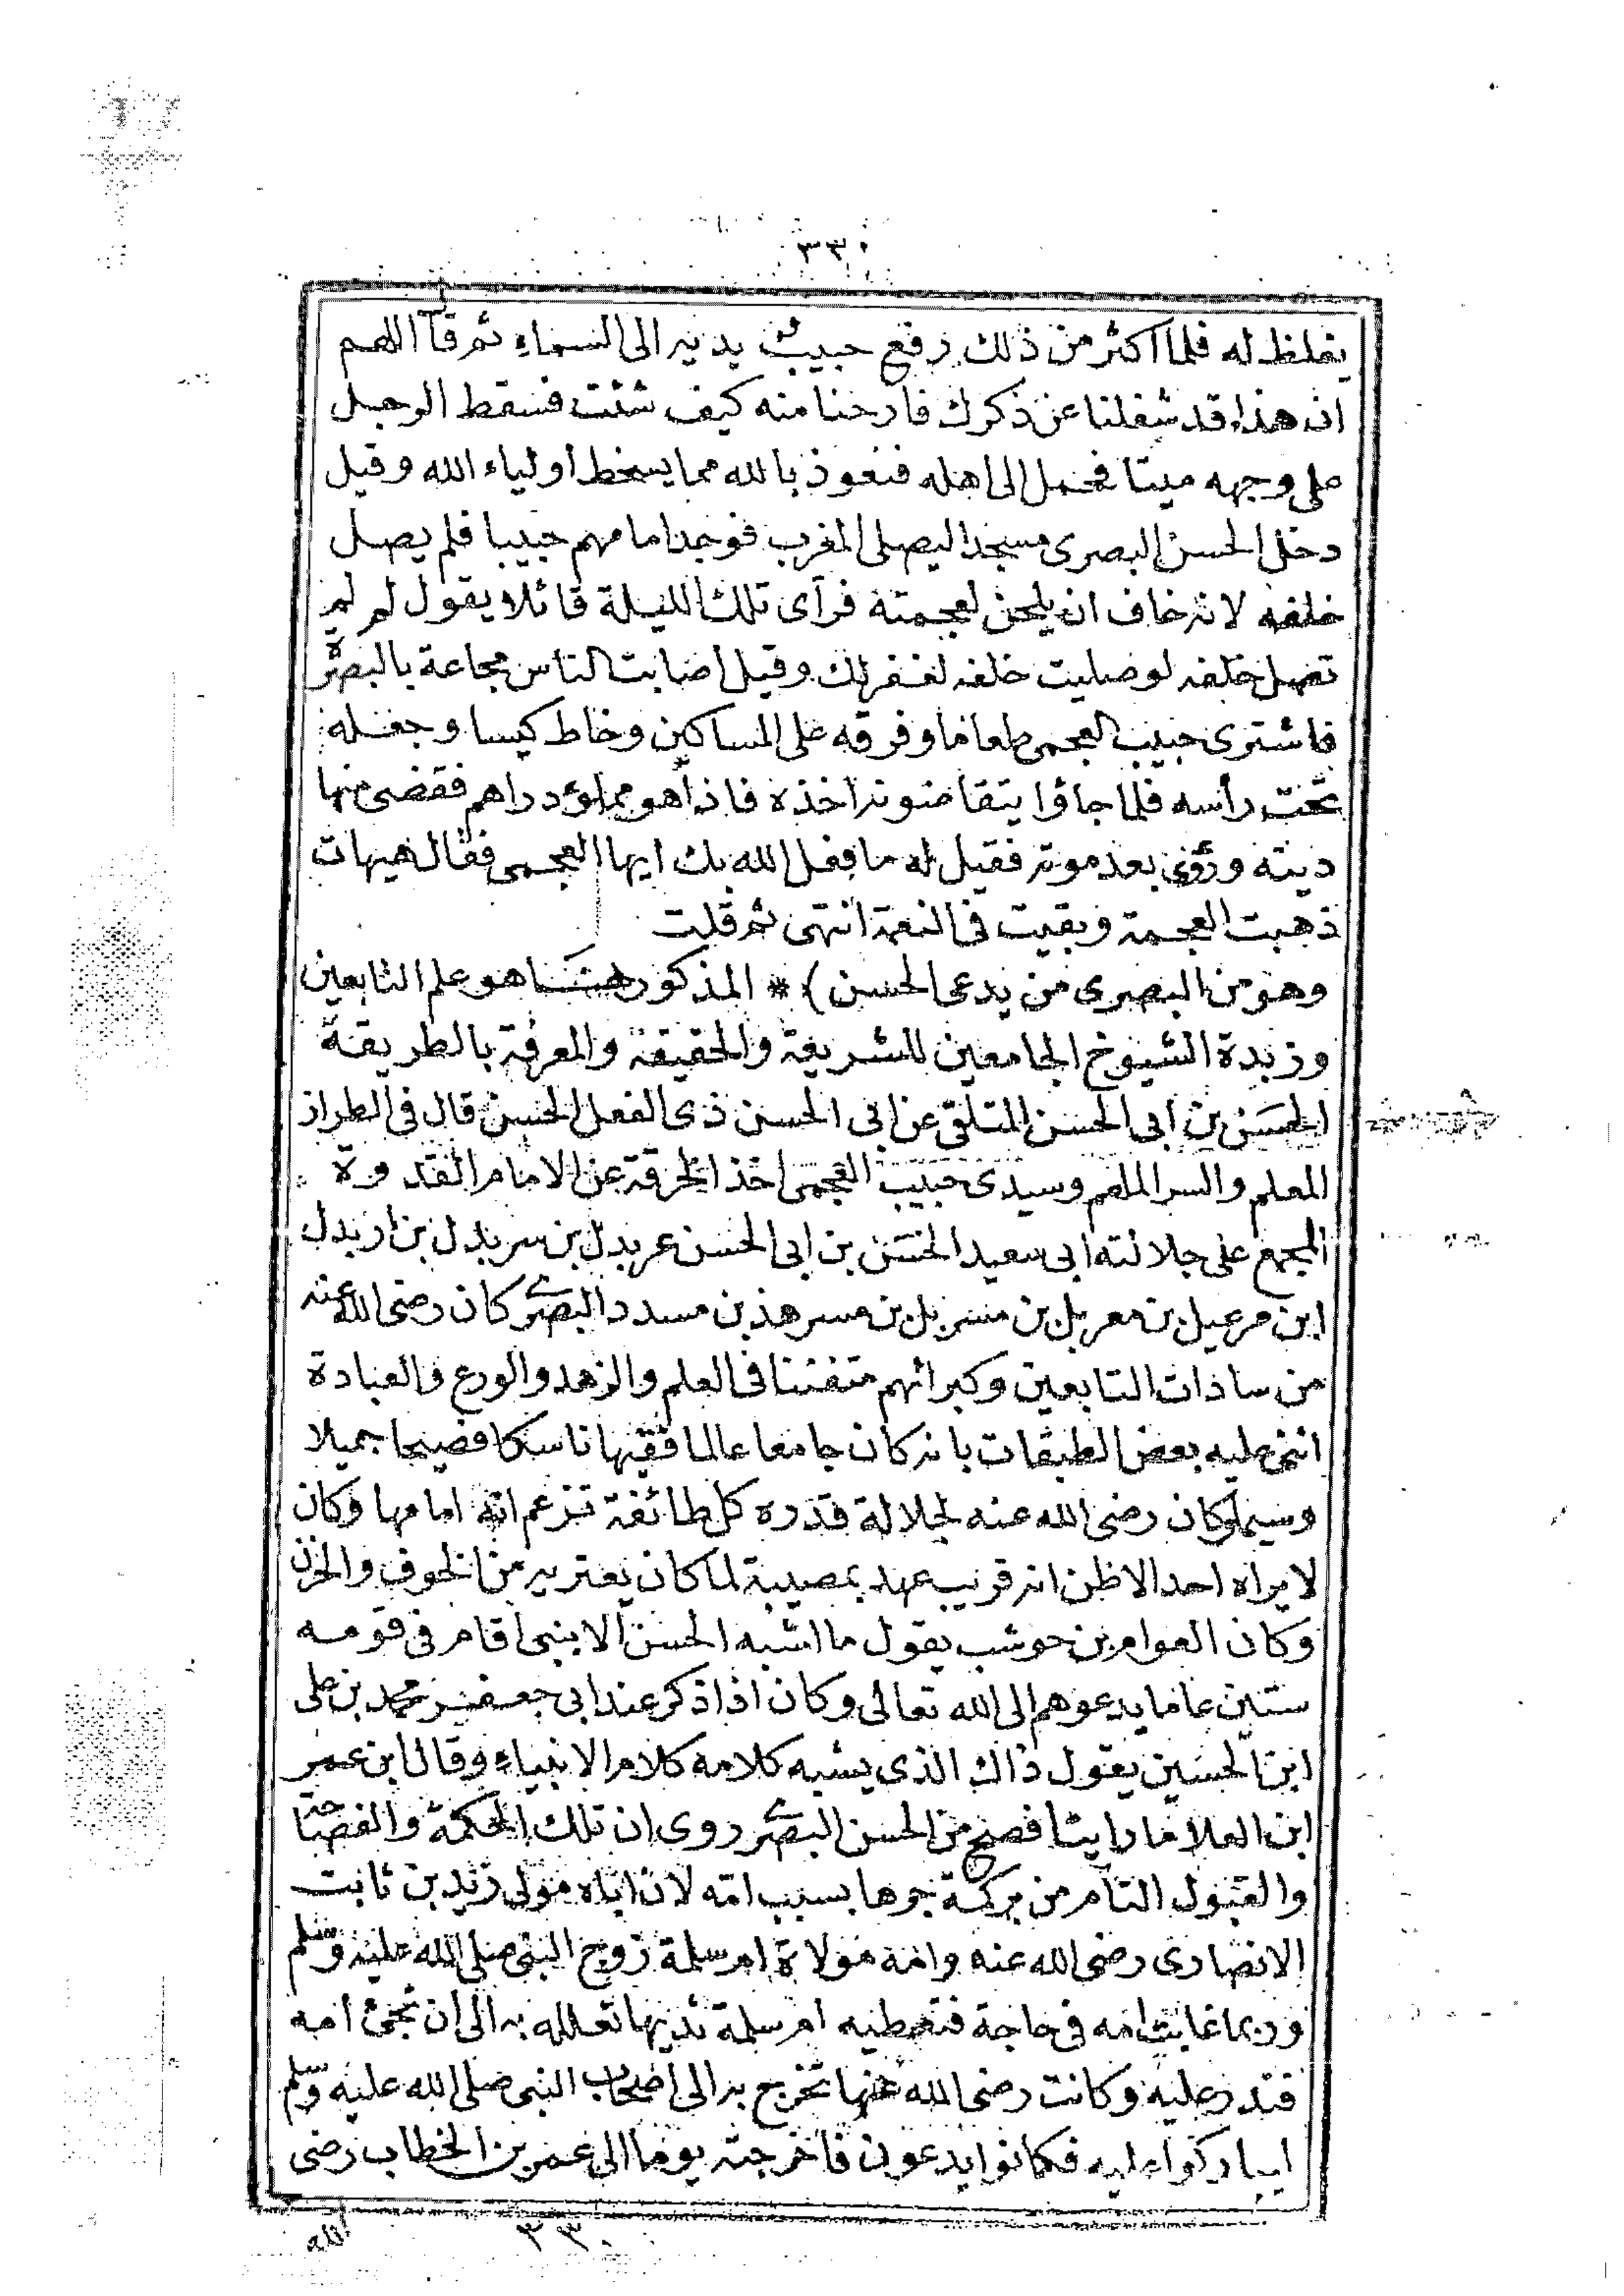 ٣٣٠
يغلظ له فلما اكثر من ذلك رفع حبيب يديه الى السماء ثم قال اللهم
ان هذا قد شغلنا عن ذكرك فارحنا منه كيف شئت فسقط الرجل
على وجهه ميتا فحمل الى اهله فنعوذ بالله مما يسخط اولياء الله وقيل
دخل الحسن البصرى مسجدا ليصلى المغرب فوجد امامهم حبيبا فلم يصل
خلفه لانه خاف ان يلحن لعجمته فرآى تلك الليلة قائلا يقول له لم لم
تصل خلفه لو صليت خلفه لغفر لك وقيل اصابت الناس مجاعة بالبصرة
فاشترى حبيب العجمى طعاما وفرقه على المساكين وخاط كيسا وجعله
تحت رأسه فلما جاؤا يتقاضونه اخذه فاذا هو مملوء دراهم فقضى منها
دينه ورؤى بعد موته فقيل له ما فعل الله بك ايها العجمى فقال هيهات
ذهبت العجمة وبقيت فى النعمة انتهى ثم قلت
وهو من البصرى من يدعى الحسن) * المذكور هنا هو علم التابعين
وزبدة الشيوخ الجامعين للشريعة والحقيقة والمعرفة بالطريقة
الحسن بن ابى الحسن المتلقى عن ابى الحسن ذى الفعل الحسن قال فى الطراز
المعلم والسر الملغم وسيدى حبيب العجمى اخذ الخرقة عن الامام القدوة
المجمع على جلالته ابى سعيد الحسن بن ابى الحسن عربدل بن سربدل بن ازبدل
ابن مرعبل بن معربل بن مسربل بن مسرهد بن مسدد البصرى كان رضى الله عنه
من سادات التابعين وكبرائهم متفننا فى العلم والزهد والورع والعبادة
اثنى عليه بعض الطبقات بانه كان جامعا عالما فقيها ناسكا فصيحا جميلا
وسيما وكان رضى الله عنه لجلالة قدره كل طائفة تزعم انه امامها وكان
لا يراه احد الا ظن انه قريب عهد بمصيبة لما كان يعتريه من الخوف والحزن
وكان العوام بن حوشب يقول ما اشبه الحسن الا بنبى اقام فى قومه
ستين عاما يدعوهم الى الله تعالى وكان اذا ذكر عند ابى جعفر محمد بن على
ابن الحسين يقول ذاك الذى يشبه كلامه كلام الانبياء وقال ابن عمر
ابن العلا ما رايت افصح من الحسن البصرى روى ان تلك الحكمة والفصاحة
والقبول التام من بركة جوها بسبب امه لان اباه مولى زيد بن ثابت
الانصارى رضى الله عنه وامه مولاة ام سلمة زوج النبى صلى الله عليه وسلم
وربما غابت امه فى حاجة فتعطيه ام سلمة ثديها تعلله به الى ان تجئ امه
فتدر عليه وكانت رضى الله عنها تخرج به الى اصحاب النبى صلى الله عليه وسلم
ليباركوا عليه فكانوا يدعون فاخرجته يوما الى عمر بن الخطاب رضى
الله
٣٣٠